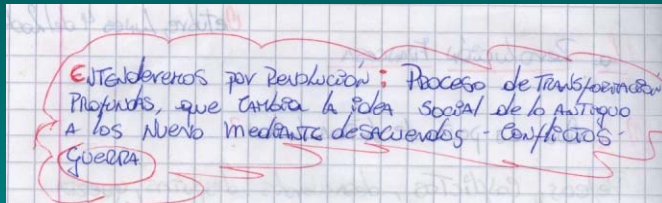 ENTENDEREMOS POR REVOLUCION : PROCESO de TRANSFORMACIÓN
PROFUNDAS, que CAMBIA la idea SOCIAL de lo ANTIGUO
A los NUEVO mediANTE desACUERDOS - CONFLICTOS -
GUERRA